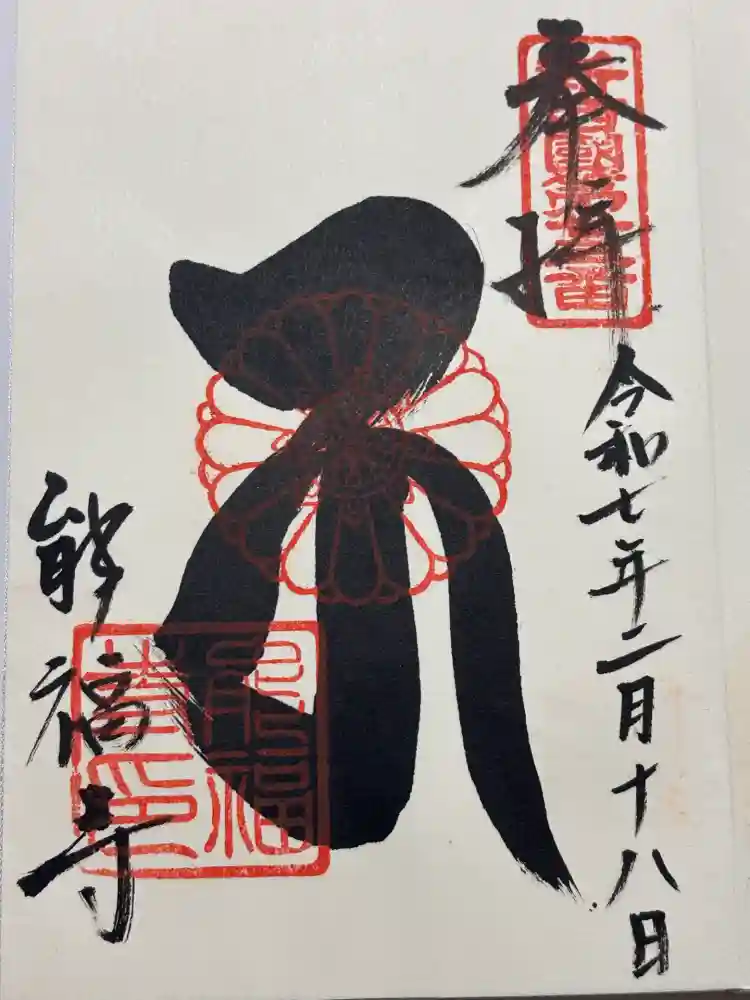 奉拝
令和七年二月十八日
能福寺
能福
寺印